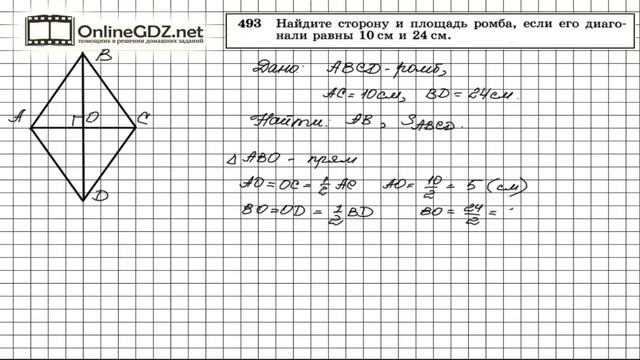 OnlineGDZ.net
помощник в решении домашних заданий
493 Найдите сторону и площадь ромба, если его диаго-
нали равны 10 см и 24 см.
Дано: ABCD - ромб,
AC = 10 см, BD = 24 см.
Найти: AB, S_ABCD.
△ ABO - прям
AO = OC = 1/2 AC AO = 10/2 = 5 (см)
BO = OD = 1/2 BD BO = 24/2 =
B
A O C
D